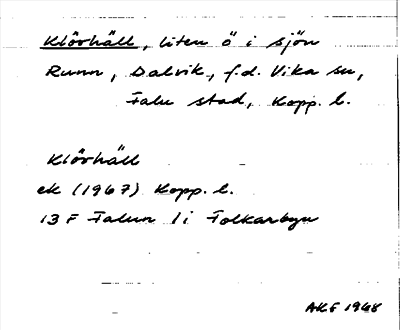 Klövhäll, liten ö i sjön
Runn, Dalvik, f.d. Vika sn,
Falu stad, Kopp. l.
Klövhäll
ek (1967) Kopp. l.
13 F Falun 1i Folkarbyn
AKF 1968